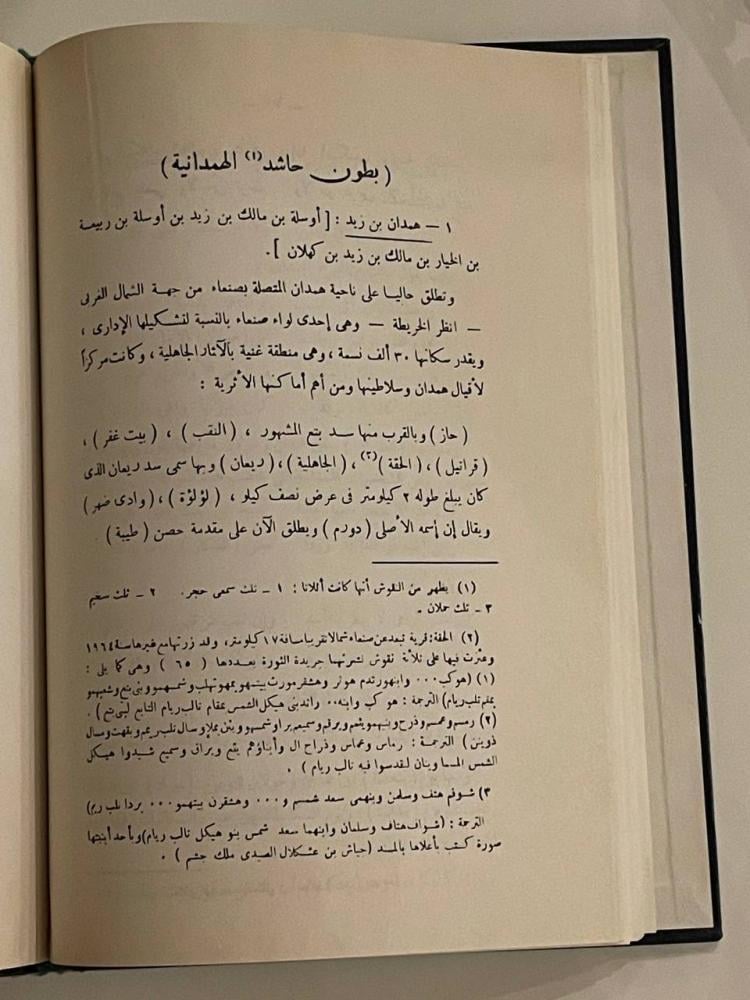 ( بطون حاشد (١) الهمدانية )
١ – همدان بن زيد : [ أوسلة بن مالك بن زيد بن أوسلة بن ربيعة
بن الخيار بن مالك بن زيد بن كهلان ] .
وتطلق حاليا على ناحية همدان المتصلة بصنعاء من جهة الشمال الغربى
– انظر الخريطة – وهى إحدى لواء صنعاء بالنسبة لتشكيلها الإدارى ،
ويقدر سكانها ٣٠ ألف نسمة ، وهى منطقة غنية بالآثار الجاهلية ، وكانت مركزاً
لأقيال همدان وسلاطينها ومن أهم أماكنها الأثرية :
( حاز ) وبالقرب منها سد بتع المشهور ، ( النقب ) ، ( بيت غفر ) ،
( قراتيل ) ، ( الحقة ) (٢) ، ( الجاهلية ) ، ( ريعان ) وبها سمى سد ريعان الذى
كان يبلغ طوله ٢ كيلومتر فى عرض نصف كيلو ، ( لؤلؤة ) ، ( وادى ضهر )
ويقال إن أسمه الأصلى ( دورم ) ويطلق الآن على مقدمة حصن ( طيبة ) .
(١) يظهر من النقوش أنها كانت أثلاثا : ١ – ثلث سمعى حجر . ٢ – ثلث سخيم
٣ – ثلث حملان .
(٢) الحقة : قرية تبعد عن صنعاء شمالا تقريبا مسافة ١٧ كيلومتر ، ولقد زرتها مع غيرها سنة ١٩٦٤
وعثرت فيها على ثلاثة نقوش نشرتها جريدة الثورة بعددها ( ٦٥ ) وهى كما يلى :
(١) ( هوكب ٠٠٠ وابنهو
الترجمة : هو كب وابنه ٠٠ رائد بنى هيكل الشمس بمقام تالب ريام التابع لبنى بتع ) .
(٢)
الترجمة : رماس وعماس وذراح ال وأبناؤهم يثع ويراق وسميع شيدوا هيكل
الشمس
٣ ) شوفم هتف وسلمن وبنهمى سعد شمسم و ٠٠٠ وهشقرن بيتهمو ٠٠٠
الترجمة : ( شواف هتاف وسلمان وابنهما سعد شمس بنو هيكل تالب ريام ) وبأحد أبنيتها
صورة كتب بأعلاها بالمسند